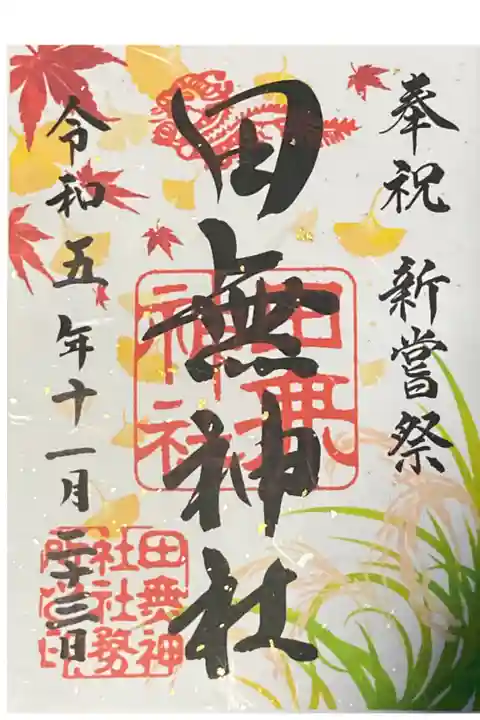 奉祝 新嘗祭
田無神社
田無神社
令和五年十一月二十三日
田無神社社務所